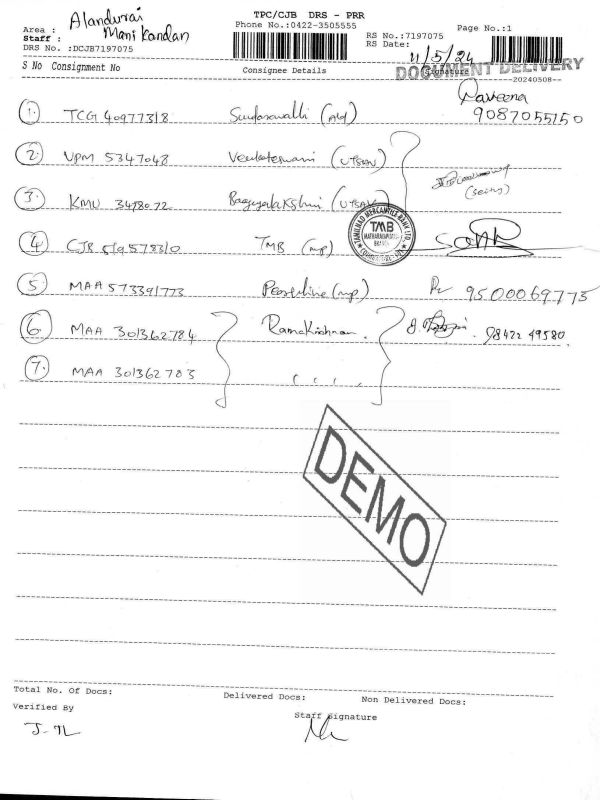 TPC/CJB DRS - PRR
Area : Alandurai
Phone No.:0422-3505555
Page No.:1
Staff : Manikandan
RS No.:7197075
DRS No. :DCJB7197075
RS Date: 11/5/24
DOCUMENT DELIVERY
S No Consignment No Consignee Details Signature
--20240508--
Naveena
1. TCG 409773/8 (Ald) 9087055150
2. VPM 5347048 Venkateswami (UTSAV)
3. KMU 3478072 Bagyalakshmi (UTSAV) (Seing)
4. CJB 519578310 TMB (mp)
TAMILNAD MERCANTILE BANK LTD.
TMB
BRANCH
5. MAA 573391773 (mp) 9500069775
6. MAA 301362784 Ramakrishnan. 98422 49580.
7. MAA 301362783 ( ( , ,
DEMO
Total No. Of Docs: Delivered Docs: Non Delivered Docs:
Verified By
Staff Signature